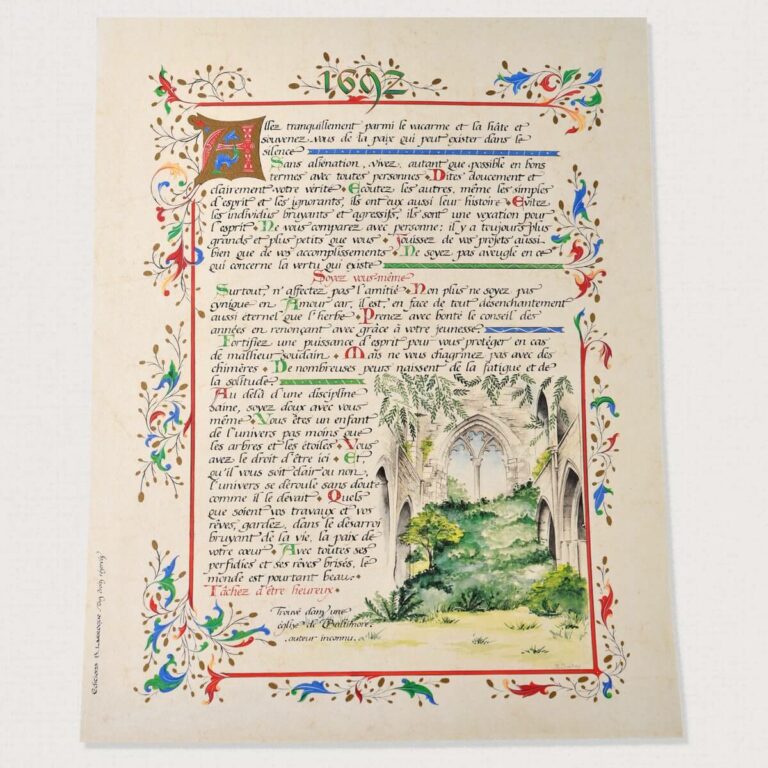 1692
Allez tranquillement parmi le vacarme et la hâte et
souvenez-vous de la paix qui peut exister dans le
silence
Sans aliénation, vivez, autant que possible en bons
termes avec toutes personnes • Dites doucement et
clairement votre vérité • Ecoutez les autres, même les simples
d'esprit et les ignorants, ils ont eux aussi leur histoire • Evitez
les individus bruyants et agressifs, ils sont une vexation pour
l'esprit • Ne vous comparez avec personne : il y a toujours plus
grands et plus petits que vous • Jouissez de vos projets aussi
bien que de vos accomplissements • Ne soyez pas aveugle en ce
qui concerne la vertu qui existe
Soyez vous-même
Surtout, n'affectez pas l'amitié • Non plus ne soyez pas
cynique en Amour car, il est, en face de tout désenchantement
aussi éternel que l'herbe • Prenez avec bonté le conseil des
années en renonçant avec grâce à votre jeunesse.
Fortifiez une puissance d'esprit pour vous protéger en cas
de malheur soudain • Mais ne vous chagrinez pas avec des
chimères • De nombreuses peurs naissent de la fatigue et de
la solitude
Au delà d'une discipline
saine, soyez doux avec vous
même • Vous êtes un enfant
de l'univers pas moins que
les arbres et les étoiles • Vous
avez le droit d'être ici • Et,
qu'il vous soit clair ou non,
l'univers se déroule sans doute
comme il le devait • Quels
que soient vos travaux et vos
rêves, gardez, dans le désarroi
bruyant de la vie, la paix de
votre cœur • Avec toutes ses
perfidies et ses rêves brisés, le
monde est pourtant beau •
Tâchez d'être heureux •
Trouvé dans une
église de Baltimore.
auteur inconnu.
Editions R. LARROQUE